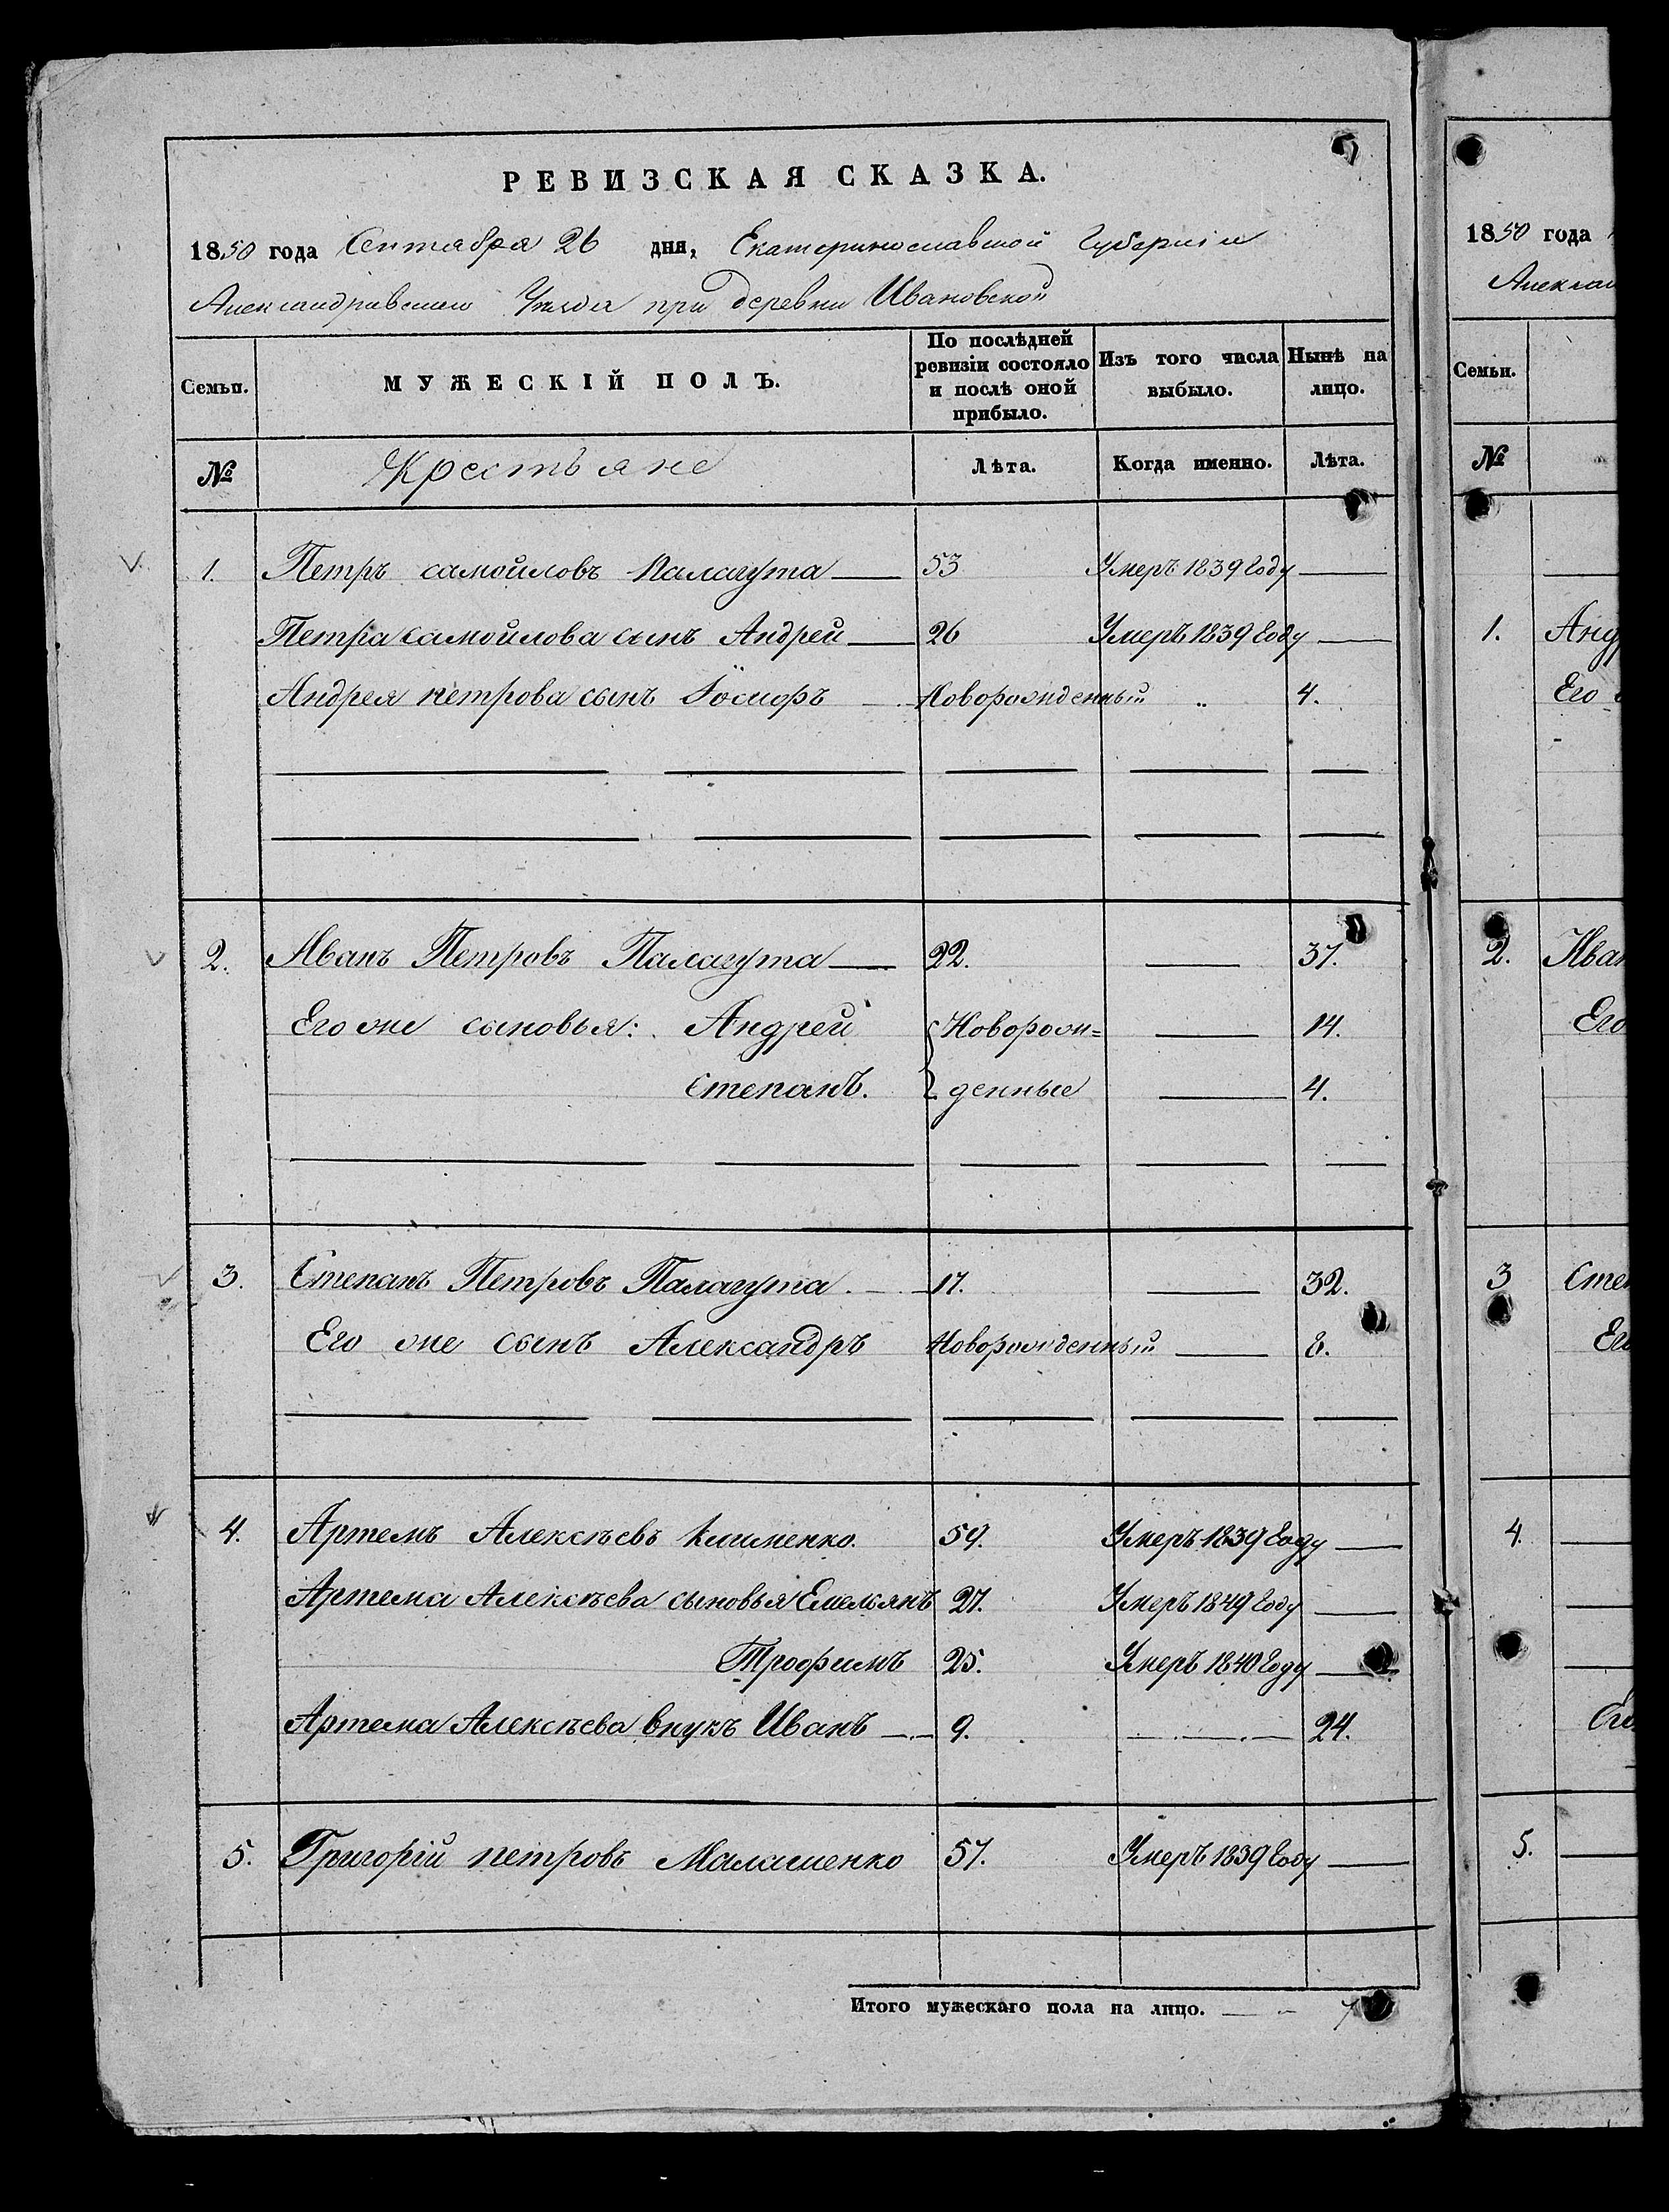 РЕВИЗСКАЯ СКАЗКА.
1850 года Сентября 26 дня, Екатеринославской Губерніи
Александравскаго Уезда при деревни Ивановской
Семьи. МУЖЕСКІЙ ПОЛЪ. По послѣдней ревизіи состояло и послѣ оной прибыло. Изъ того числа выбыло. Нынѣ на лицо.
№ Крестьяне Лѣта. Когда именно. Лѣта.
1. Петръ самойловъ Палагута 53 Умеръ 1839 Году
Петра самойлова сынъ Андрей 26 Умеръ 1839 Году
Андрея петрова сынъ Новорожденный 4.
2. Иванъ Петровъ Палагута 22. 37.
Его же сыновья: Андрей Новорож= 14.
Степанъ. денные 4.
3. Степанъ Петровъ Палагута 17. 32.
Его же сынъ Александръ Новорожденный 8.
4. Артемъ Алексѣевъ Клименко. 59. Умеръ 1839 Году
Артема Алексѣева сыновья Емельянъ 27. Умеръ 1849 Году
Трофимъ 25. Умеръ 1840 Году
Артема Алексѣева внукъ Иванъ 9. 24.
5. Григорій петровъ Малашенко 57. Умеръ 1839 Году
Итого мужескаго пола на лицо. 7
1850 года
Алексан
Семьи.
№
1. Анд
Его
2. Иван
Его
3 Степ
Его
4.
Его
5.